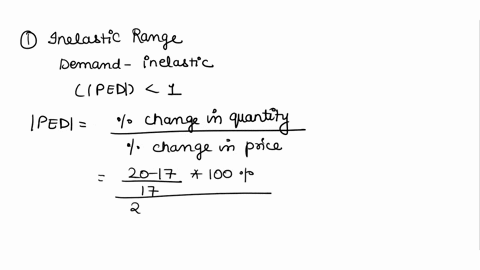 ① Inelastic Range
Demand - inelastic
(|PED|) < 1
|PED| = % change in quantity
% change in price
= 20-17 * 100 %
17
2